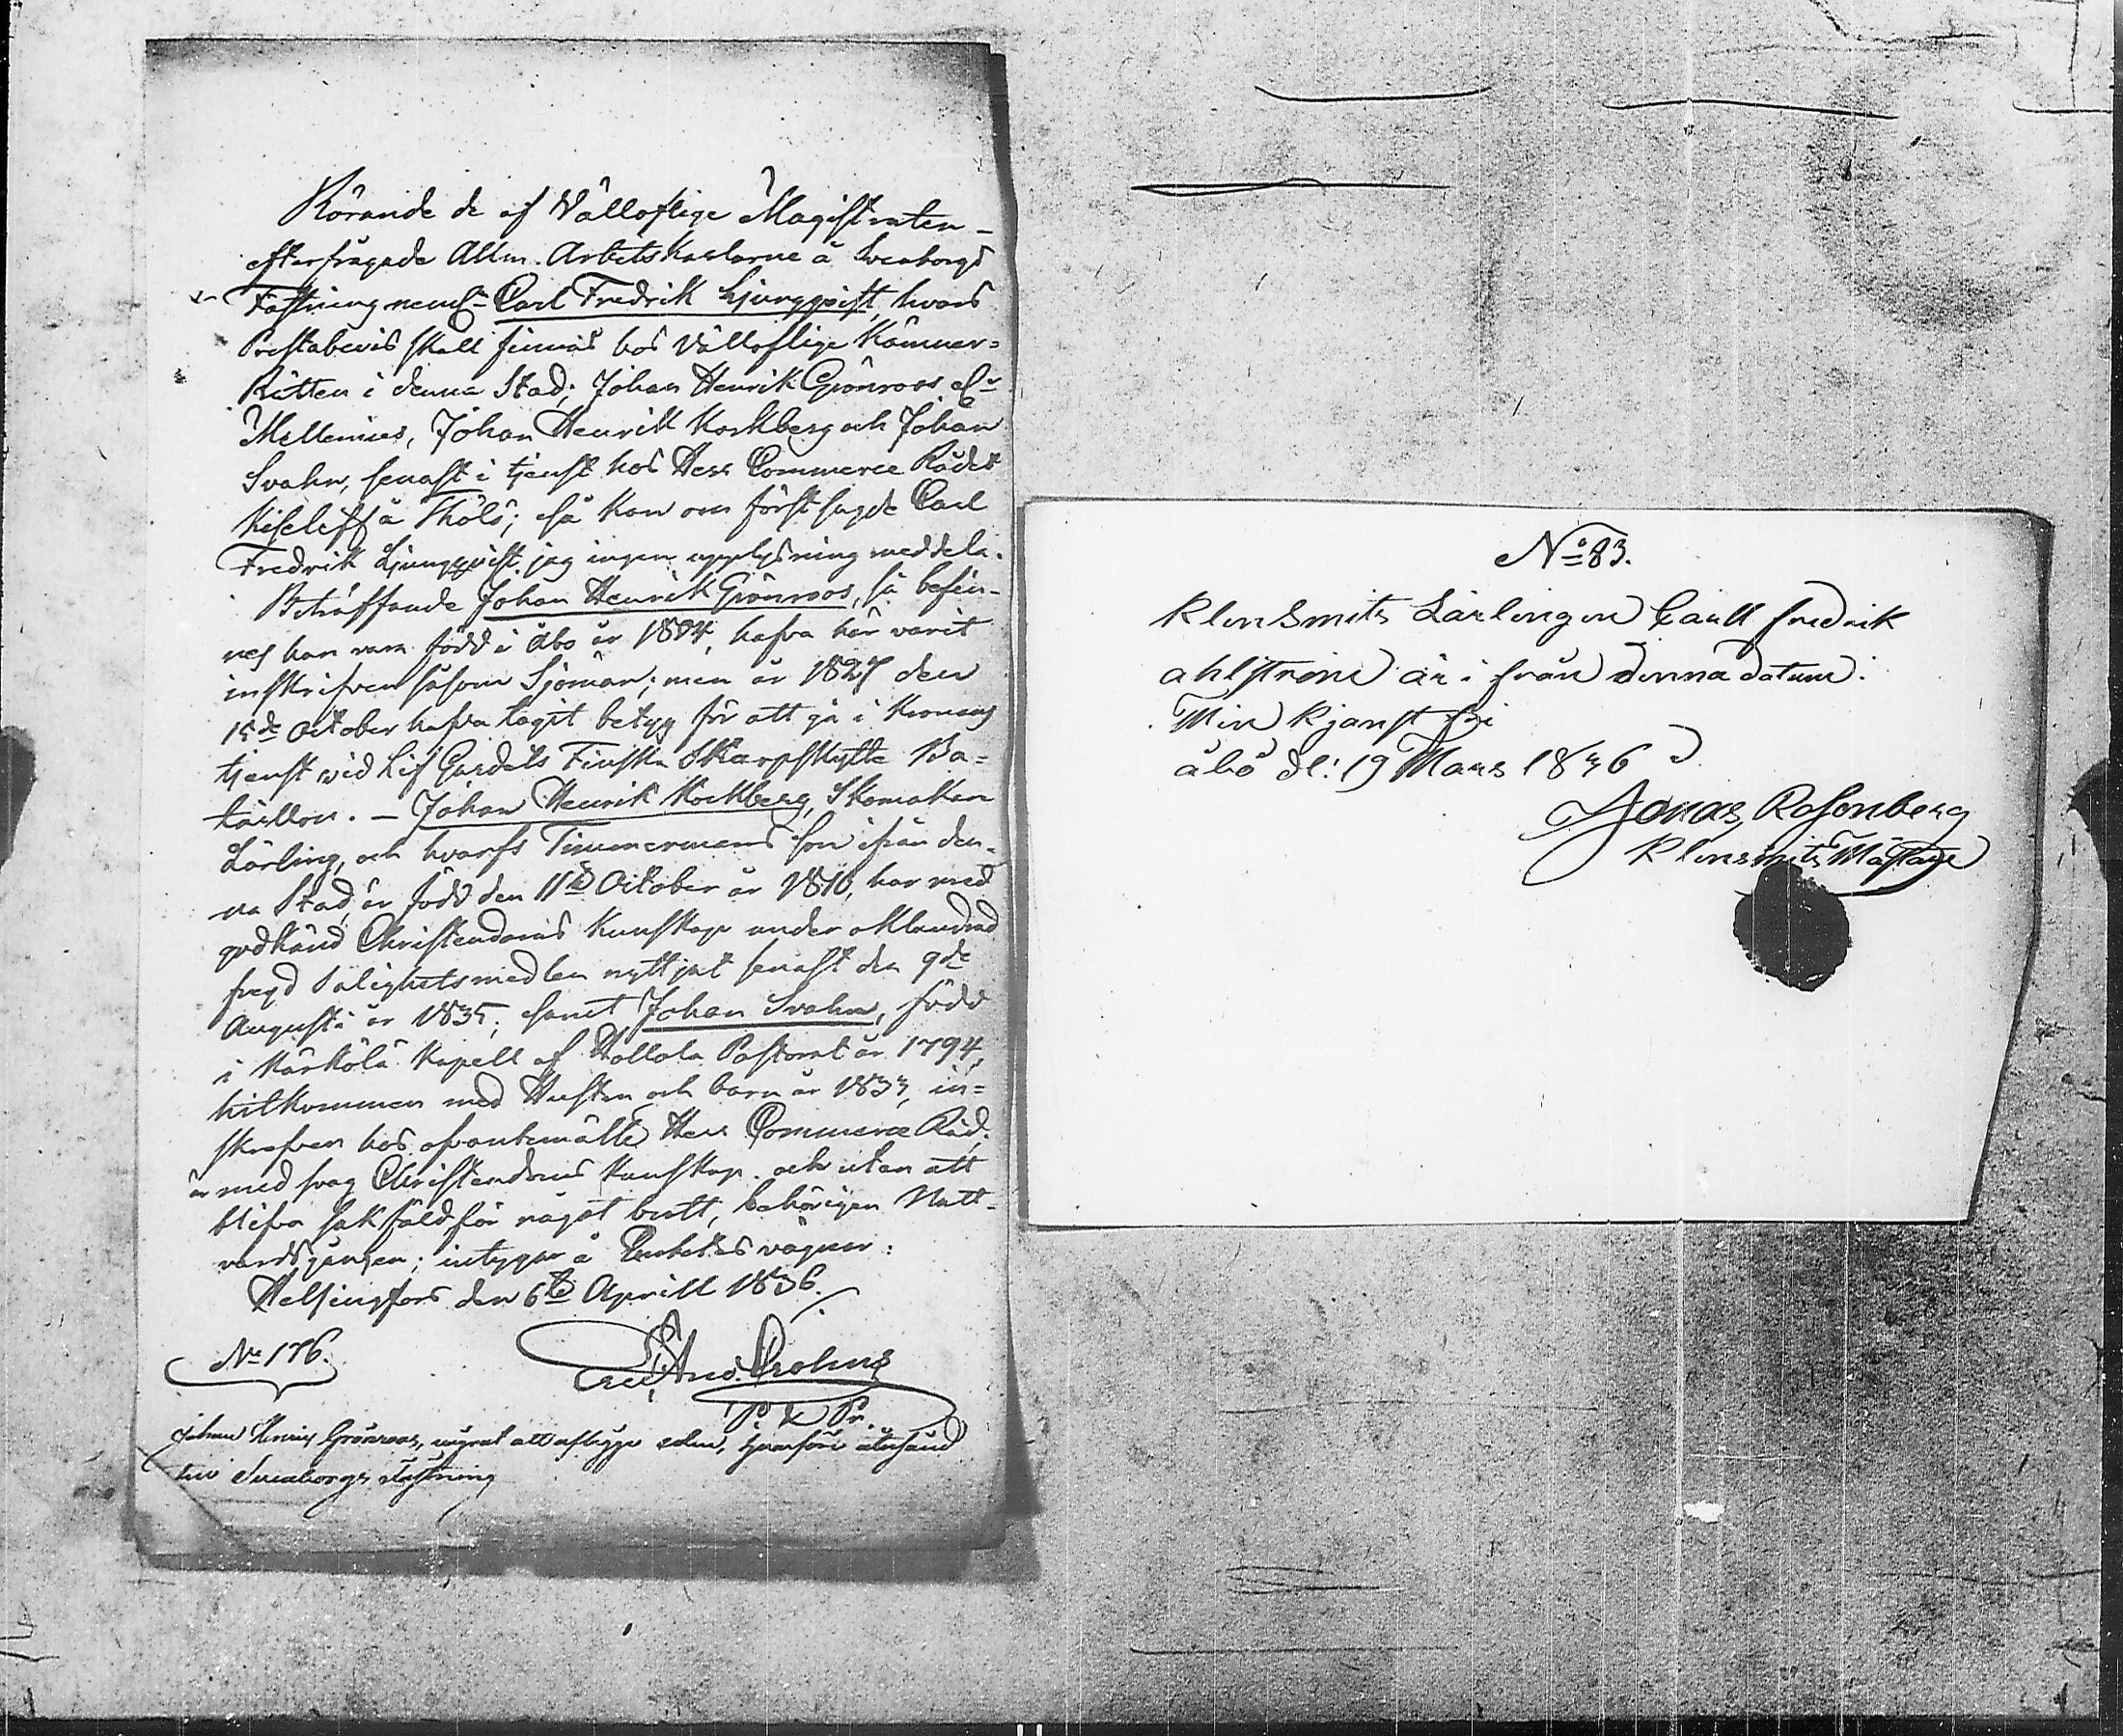 Rörande de af Välloflige Magistraten
efterfrågade Allm. Arbetskarlarne å Sveaborgs
Fästning neml. Carl Fredrik Ljungqvist, hvars
Prestabevis skall finnas hos Vällofliga Kämner-
Rätten i denna Stad; Johan Henrik Grönroos elr
Mellenius, Johan Henrik Kockberg och Johan
Svahn, senast i tjenst hos Herr Commerce Rådet
Kiseleff å Thölö; så kan om förstsagde Carl
Fredrik Ljungqvist jag ingen upplysning meddela.
Beträffande Johan Henrik Grönroos, så befin-
nes han vara född i Åbo år 1804, hafva här varit
inskrifven såsom Sjöman; men år 1827 den
15de October hafva tagit betyg för att gå i Kronans
tjenst vid Lif Gardets Finska Skarpskytte Ba-
taillon. – Johan Henrik Kockberg, Skomakare
Lärling, och hvarfs Timmermans son ifrån den-
na Stad, är född den 11te October år 1810, har med
godkänd Christendoms kunskap under oklandrad
frejd salighetsmedlen nyttjat senast den 9de
Augusti år 1835; samt Johan Svahn, född
i Kärkölä Kapell af Hollola Pastorat år 1794,
hitkommen med Hustru och barn år 1833, in-
skrefven hos ofvanbemälte Herr Commerce Råd,
är med svag Christendoms kunskap och utan att
blifva sakfäld för något brott, behörigen Natt-
vardsgången; intygar å Embetets vägnar:
Helsingfors den 6te Aprill 1836.
No 176.
Crohns
P. & Pr.
Johan Henrik Grönroos, vägrat att aflägga eden, hvarföre återsänd
till Sveaborgs Fästning
No 83.
Klensmits Lärlingen Carll fredrik
ahlström är i från denna datum
Min kjänst fri
åbo de: 19 Mars 1836
Jonas Rosenberg
Klensmits Mästare